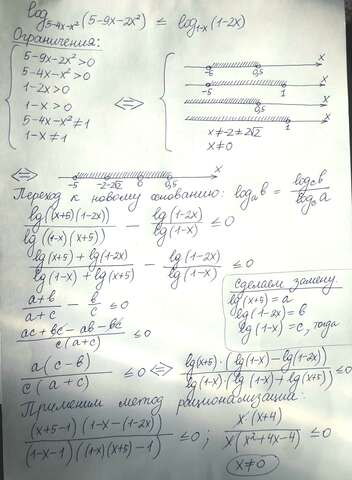 log₅₋₄ₓ₋ₓ²(5-9x-2x²) ≤ log₁₋ₓ(1-2x)
Ограничения:
{ 5-9x-2x²>0
5-4x-x²>0
1-2x>0
1-x>0
5-4x-x²≠1
1-x≠1
⇔ {
-5 0,5 x
-5 1
0,5
1
x≠-2±2√2
x≠0
⇔ -5 -2-2√2 0 0,5 x
Переход к новому основанию: logₐb = log_c b / log_c a
lg((x+5)(1-2x)) / lg((1-x)(x+5)) - lg(1-2x) / lg(1-x) ≤0
(lg(x+5)+lg(1-2x)) / (lg(1-x)+lg(x+5)) - lg(1-2x) / lg(1-x) ≤0
Сделаем замену:
lg(x+5)=a
lg(1-2x)=b
lg(1-x)=c, тогда
(a+b)/(a+c) - b/c ≤0
(ac+bc-ab-bc) / (c(a+c)) ≤0
a(c-b) / (c(a+c)) ≤0 ⇔ lg(x+5)·(lg(1-x)-lg(1-2x)) / (lg(1-x)·(lg(1-x)+lg(x+5))) ≤0
Применим метод рационализации:
(x+5-1)(1-x-(1-2x)) / ((1-x-1)((1-x)(x+5)-1)) ≤0 ; x·(x+4) / (x(x²+4x-4)) ≤0
x≠0